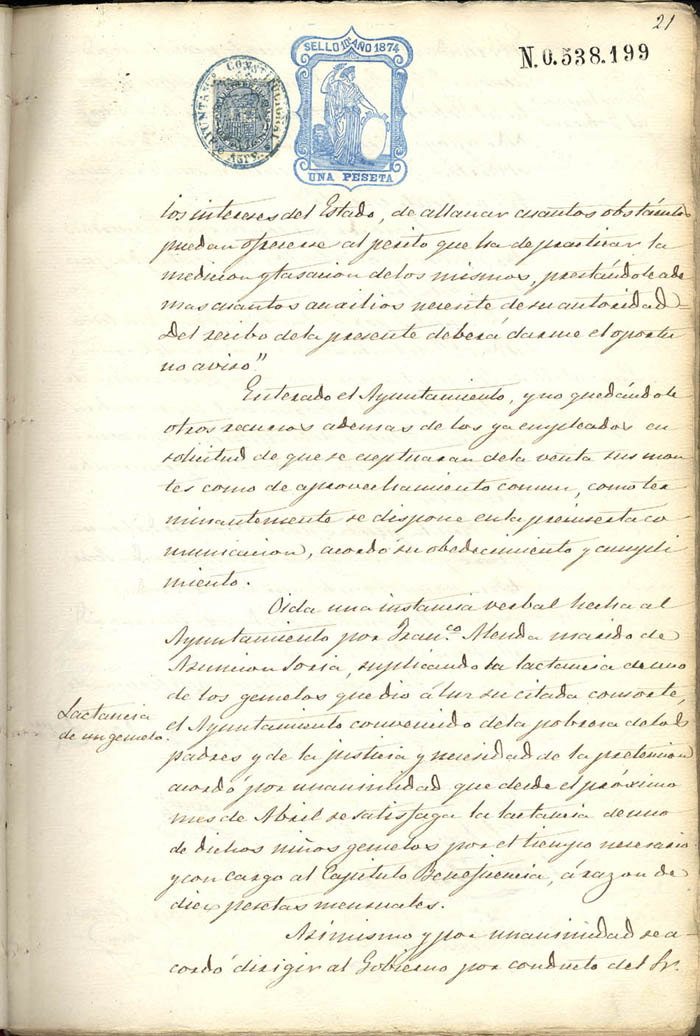 21
N.0.538.199
SELLO 10º AÑO 1874
UNA PESETA
AYUNTAMº CONSTITUCIONAL
ASPE
los intereses del Estado, de allanar cuantos obstáculos
puedan ofrecerse al perito que ha de practicar la
medicion y tasacion de los mismos, prestándole ade
mas cuantos auxilios necesite de su autoridad=
Del recibo de la presente deberá darme el oportu
no aviso"
Enterado el Ayuntamiento, y no quedándole
otros recursos ademas de los ya empleados en
solicitud de que se eceptuaran de la venta sus mon
tes como de aprovechamiento comun, como ter
minantemente se dispone en la preinserta co
municacion, acordó su obedecimiento y cumpli
miento.
Oida una instancia verbal hecha al
Ayuntamiento por Fran.co Alenda marido de
Asuncion Soria, suplicando la lactancia de uno
de los gemelos que dio á luz su citada consorte,
el Ayuntamiento convencido de la pobreza de los
padres y de la justicia y necesidad de la pretension
acordó por unanimidad que desde el próximo
mes de Abril se satisfaga la lactancia de uno
de dichos niños gemelos por el tiempo necesario
y con cargo al Capitulo Beneficencia, á razon de
diez pesetas mensuales.
Asimismo y por unanimidad se a-
cordó dirigir al Gobierno por conducto del Sr.
Lactancia
de un gemelo.